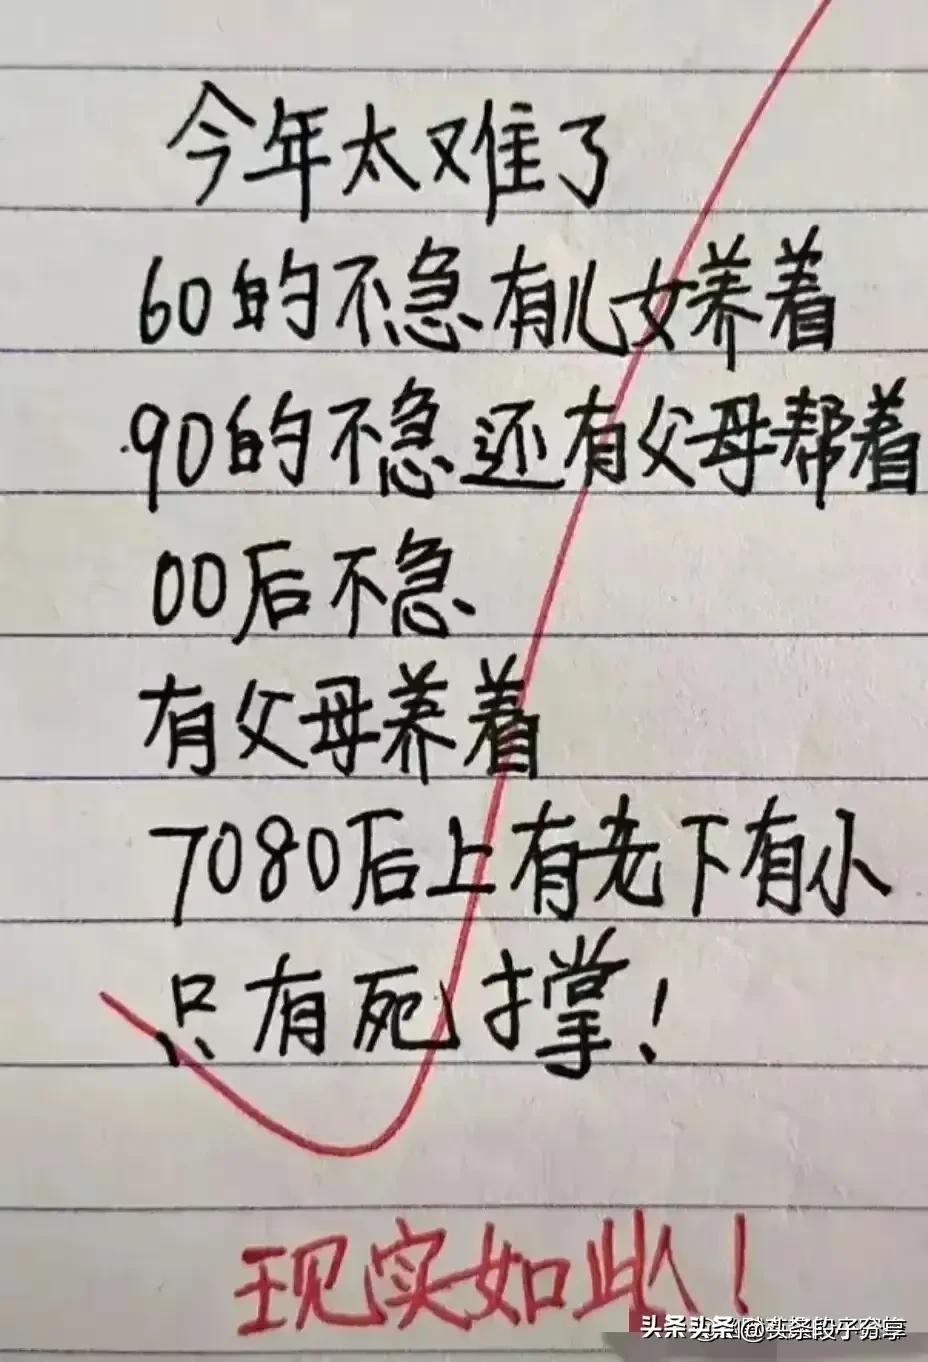 今年太难了
60的不急有儿女养着
90的不急还有父母帮着
00后不急
有父母养着
7080后上有老下有小
只有死撑!
现实如此!
头条 @头条段子分享